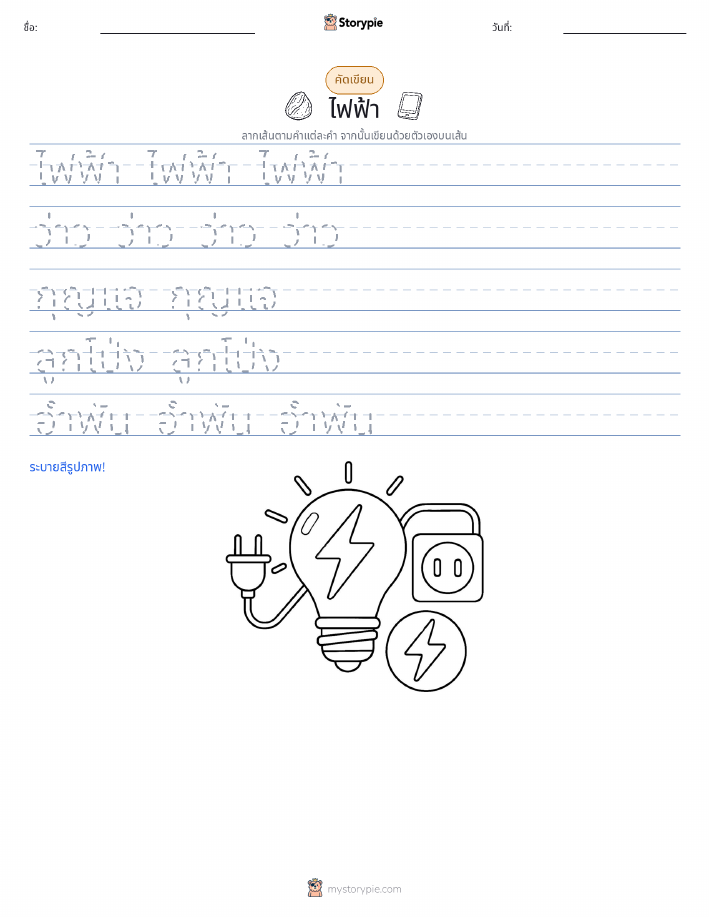 ชื่อ:
Storypie
วันที่:
คัดเขียน
ไฟฟ้า
ลากเส้นตามคำแต่ละคำ จากนั้นเขียนด้วยตัวเองบนเส้น
ไฟฟ้า ไฟฟ้า ไฟฟ้า
ว่าว ว่าว ว่าว ว่าว
กุญแจ กุญแจ
ลูกโป่ง ลูกโป่ง
อำพัน อำพัน อำพัน
ระบายสีรูปภาพ!
mystorypie.com